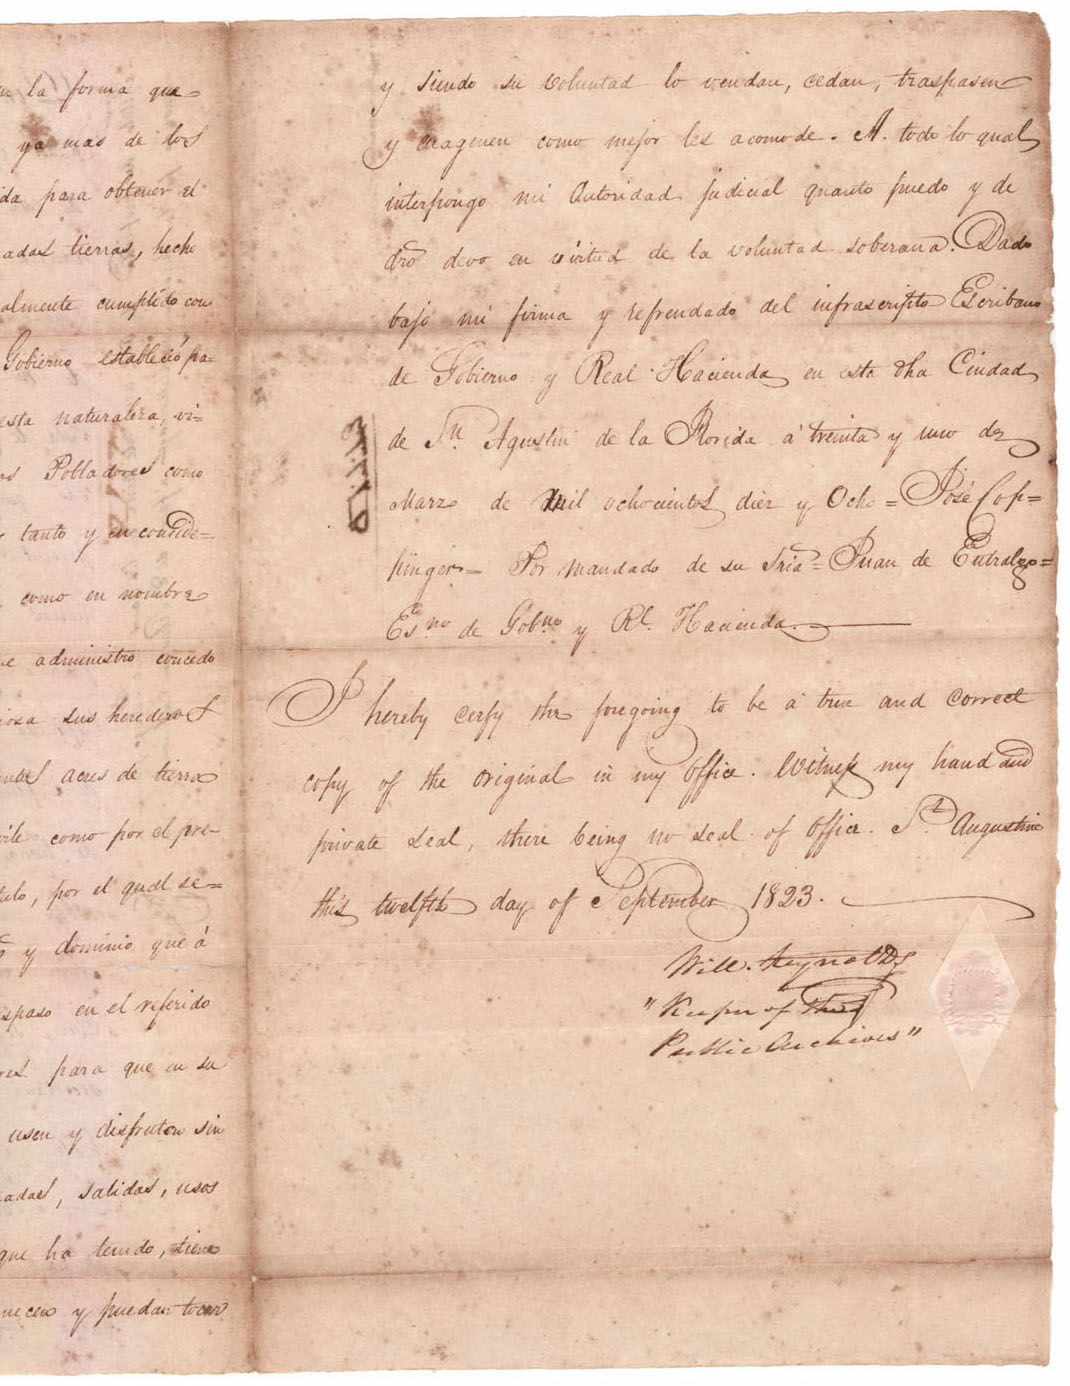 en la forma que
ya mas de los
ida para obtener el
adas tierras, hecho
almente cumplido con
Gobierno estableció pa-
esta naturaleza, vi-
Pobladores como
tanto y en conside-
como en nombre
ue administro concedo
iosa sus herederos
acres de tierra
como por el pre-
tulo, por el qual se=
y dominio que á
spaso en el referido
res para que en su
usen y disfruten sin
adas, salidas, usos
que ha tenido, tiene
necen y puedan tocar
y siendo su voluntad lo vendan, cedan, traspasen
y enagenen como mejor les acomode. A. todo lo qual
interpongo mi Autoridad judicial quanto puedo y de
dro devo en virtud de la voluntad soberana. Dado
bajo mi firma y refrendado del infrascripto Escribano
de Gobierno y Real Hacienda en esta dha Ciudad
de Sn. Agustin de la Florida á treinta y uno de
Marzo de mil ochocientos diez y Ocho = José Cop=
pinger = Por mandado de su Sria = Juan de Entralgo =
Es.no de Gob.no y Rl. Hacienda.
I hereby cerfy the foregoing to be a true and correct
copy of the original in my office. Witness my hand and
private seal, there being no seal of office. St. Augustine
this twelfth day of September 1823.
Will. Reynolds
"Keeper of the
Public Archives"